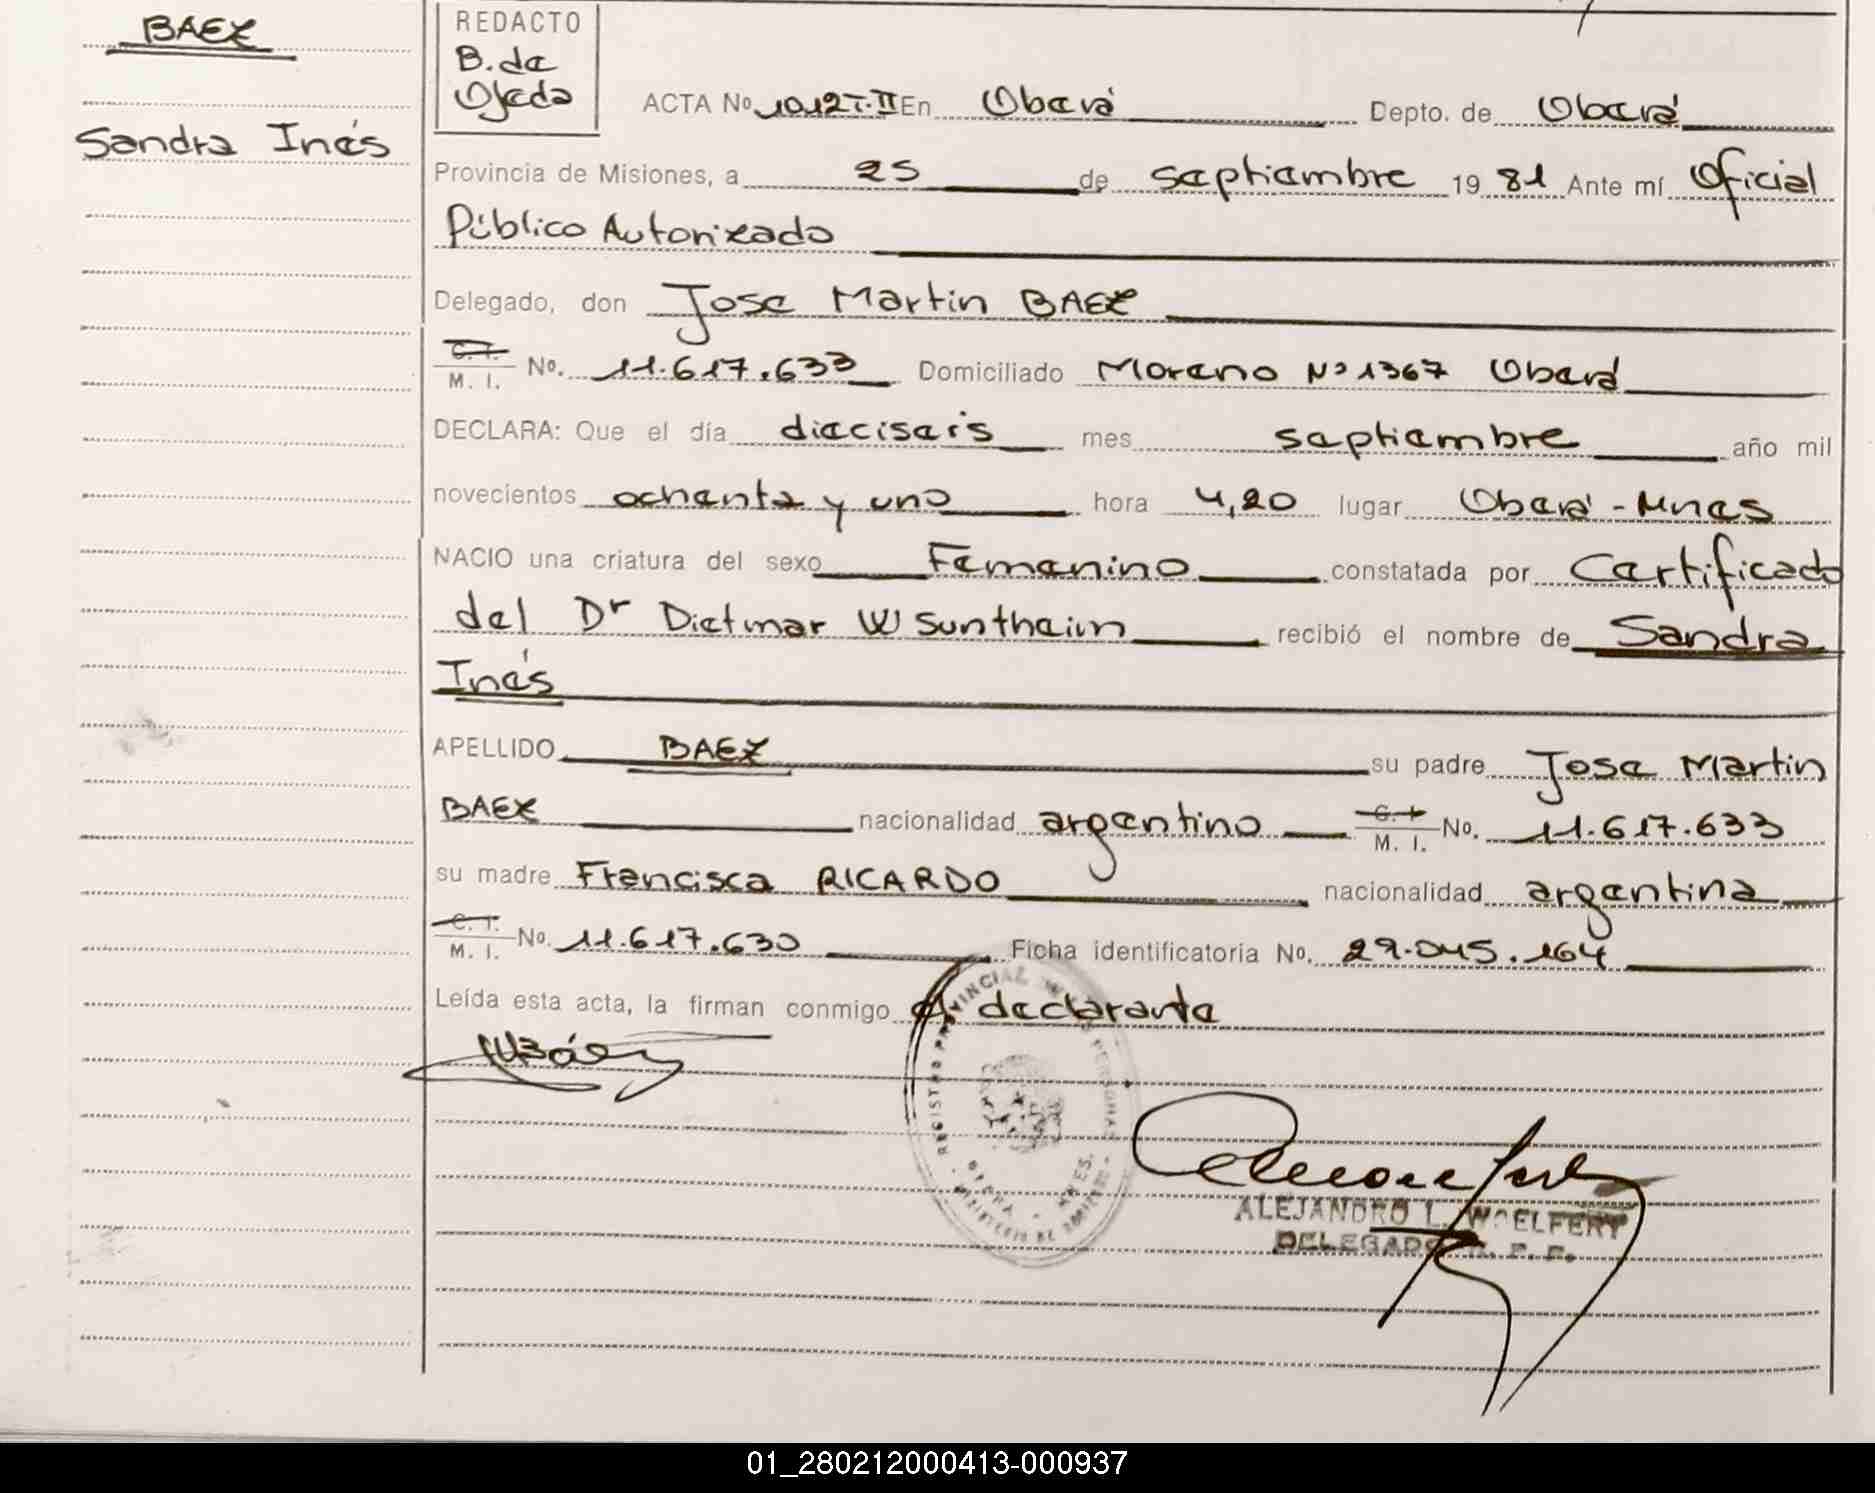 BAEZ
Sandra Inés
REDACTO
B. de
Ojeda
ACTA No 1012 T. II En Oberá Depto. de Oberá
Provincia de Misiones, a 25 de septiembre 19 81 Ante mí Oficial
Público Autorizado
Delegado, don Jose Martin BAEZ
C. I.
M. I. No. 11.617.633 Domiciliado Moreno Nº 1367 Oberá
DECLARA: Que el día dieciseis mes septiembre año mil
novecientos ochenta y uno hora 4,20 lugar Oberá - Mnes
NACIO una criatura del sexo Femenino constatada por Certificado
del Dr Dietmar W Suntheim recibió el nombre de Sandra
Inés
APELLIDO BAEZ su padre Jose Martin
BAEZ nacionalidad argentino C. I. M. I. No. 11.617.633
su madre Francisca RICARDO nacionalidad argentina
C. I.
M. I. No. 11.617.630 Ficha identificatoria No. 29.045.164
Leída esta acta, la firman conmigo el declarante
Báez
REGISTRO PROVINCIAL DE LAS PERSONAS
OBERA - MNES.
MINISTERIO DE GOBIERNO
ALEJANDRO L. WOELFERT
DELEGADO R. P. P.
01_280212000413-000937